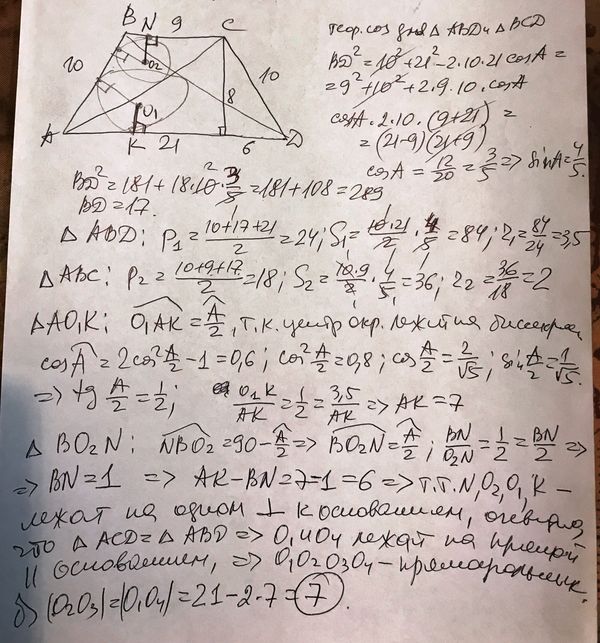 B N 9 C
10 O₂ 10
8
O₁
A K 21 6 D
теор. cos для △ ABD и △ BCD
BD² = 10² + 21² - 2·10·21 cosA =
= 9² + 10² + 2·9·10·cosA
cosA·2·10·(9+21) =
= (21-9)(21+9)
cosA = 12/20 = 3/5 => sinA = 4/5.
BD² = 181 + 18·10·3/5 = 181 + 108 = 289
BD = 17.
△ ABD: p₁ = (10+17+21)/2 = 24; S₁ = (10·21)/2 · 4/5 = 84; r₁ = 84/24 = 3,5
△ ABC: p₂ = (10+9+17)/2 = 18; S₂ = (10·9)/2 · 4/5 = 36; r₂ = 36/18 = 2
△AO₁K: O₁AK = A/2, т.к. центр окр. лежит на биссектрисе
cosA = 2cos²A/2 - 1 = 0,6; cos²A/2 = 0,8; cosA/2 = 2/√5; sinA/2 = 1/√5.
=> tg A/2 = 1/2; O₁K/AK = 1/2 = 3,5/AK => AK = 7
△ BO₂N: NBO₂ = 90 - A/2 => BO₂N = A/2; BN/O₂N = 1/2 = BN/2 =>
=> BN = 1 => AK - BN = 7 - 1 = 6 => т.т. N, O₂, O₁, K -
лежат на одном ⊥ к основаниям, очевидно,
что △ ACD = △ ABD => O₁ и O₄ лежат на прямой
|| основаниям, => O₁O₂O₃O₄ - прямоугольник.
б) |O₂O₃| = |O₁O₄| = 21 - 2·7 = 7.